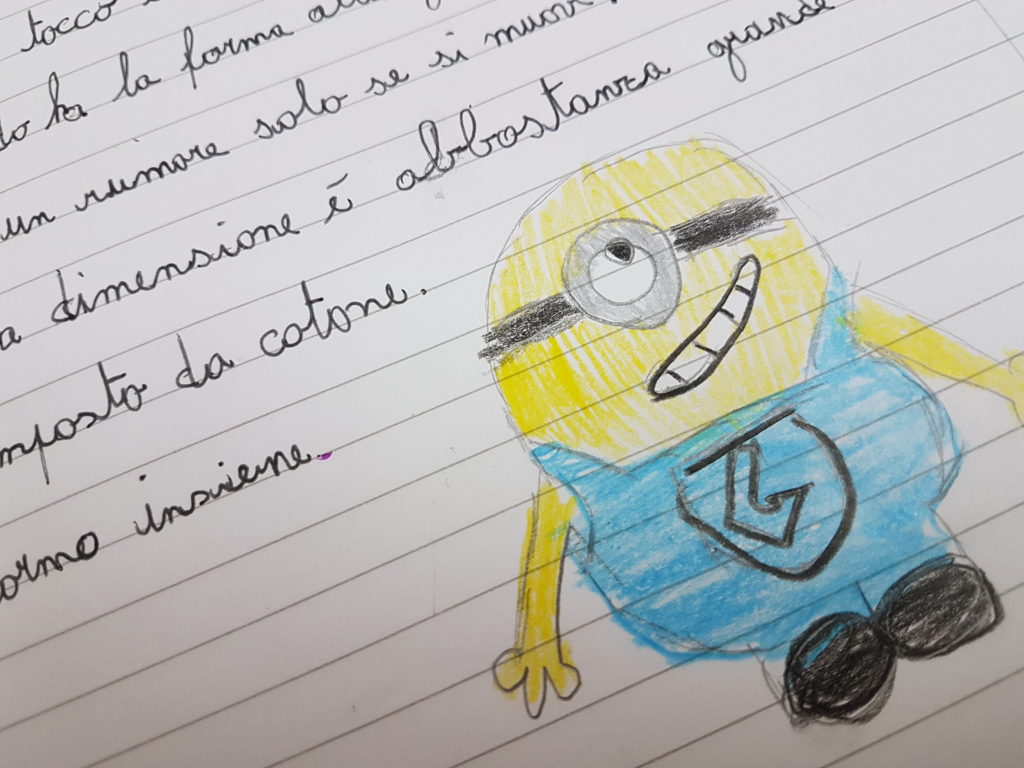 tocco
ha la forma
un rumore solo se si
dimensione è abbastanza grande
mposto da cotone.
ormo insieme.
G